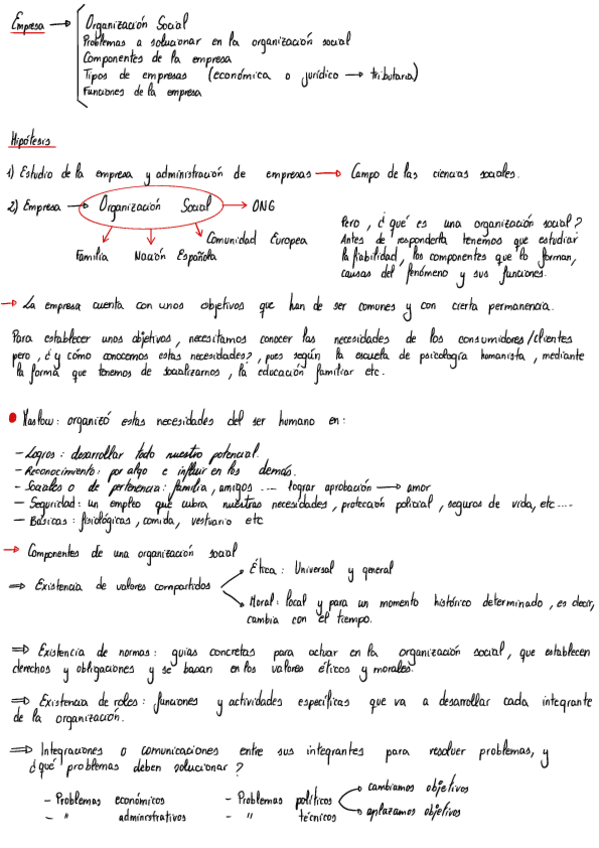 Empresa → Organización Social
Problemas a solucionar en la organización social
Componentes de la empresa
Tipos de empresas (económica o jurídico → tributaria)
Funciones de la empresa
Hipótesis
1) Estudio de la empresa y administración de empresas → Campo de las ciencias sociales.
2) Empresa → Organización Social → ONG
Familia Nación Española Comunidad Europea
Pero, ¿qué es una organización social?
Antes de responderla tenemos que estudiar
la fiabilidad, los componentes que lo forman,
causas del fenómeno y sus funciones.
→ La empresa cuenta con unos objetivos que han de ser comunes y con cierta permanencia.
Para establecer unos objetivos, necesitamos conocer las necesidades de los consumidores/clientes
pero, ¿y cómo conocemos estas necesidades?, pues según la escuela de psicología humanista, mediante
la forma que tenemos de socializarnos, la educación familiar etc.
• Maslow: organizó estas necesidades del ser humano en:
- Logros: desarrollar todo nuestro potencial.
- Reconocimiento: por algo e influir en los demás.
- Sociales o de pertenencia: familia, amigos .... lograr aprobación → amor
- Seguridad: un empleo que cubra nuestras necesidades, protección policial, seguros de vida, etc....
- Básicas: fisiológicas, comida, vestuario etc
→ Componentes de una organización social
⇒ Existencia de valores compartidos
Ética: Universal y general
Moral: local y para un momento histórico determinado, es decir,
cambia con el tiempo.
⇒ Existencia de normas: guías concretas para actuar en la organización social, que establecen
derechos y obligaciones y se basan en los valores éticos y morales.
⇒ Existencia de roles: funciones y actividades específicas que va a desarrollar cada integrante
de la organización.
⇒ Integraciones o comunicaciones entre sus integrantes para resolver problemas, y
¿qué problemas deben solucionar?
- Problemas económicos - Problemas políticos cambiamos objetivos
- " administrativos - " técnicos aplazamos objetivos